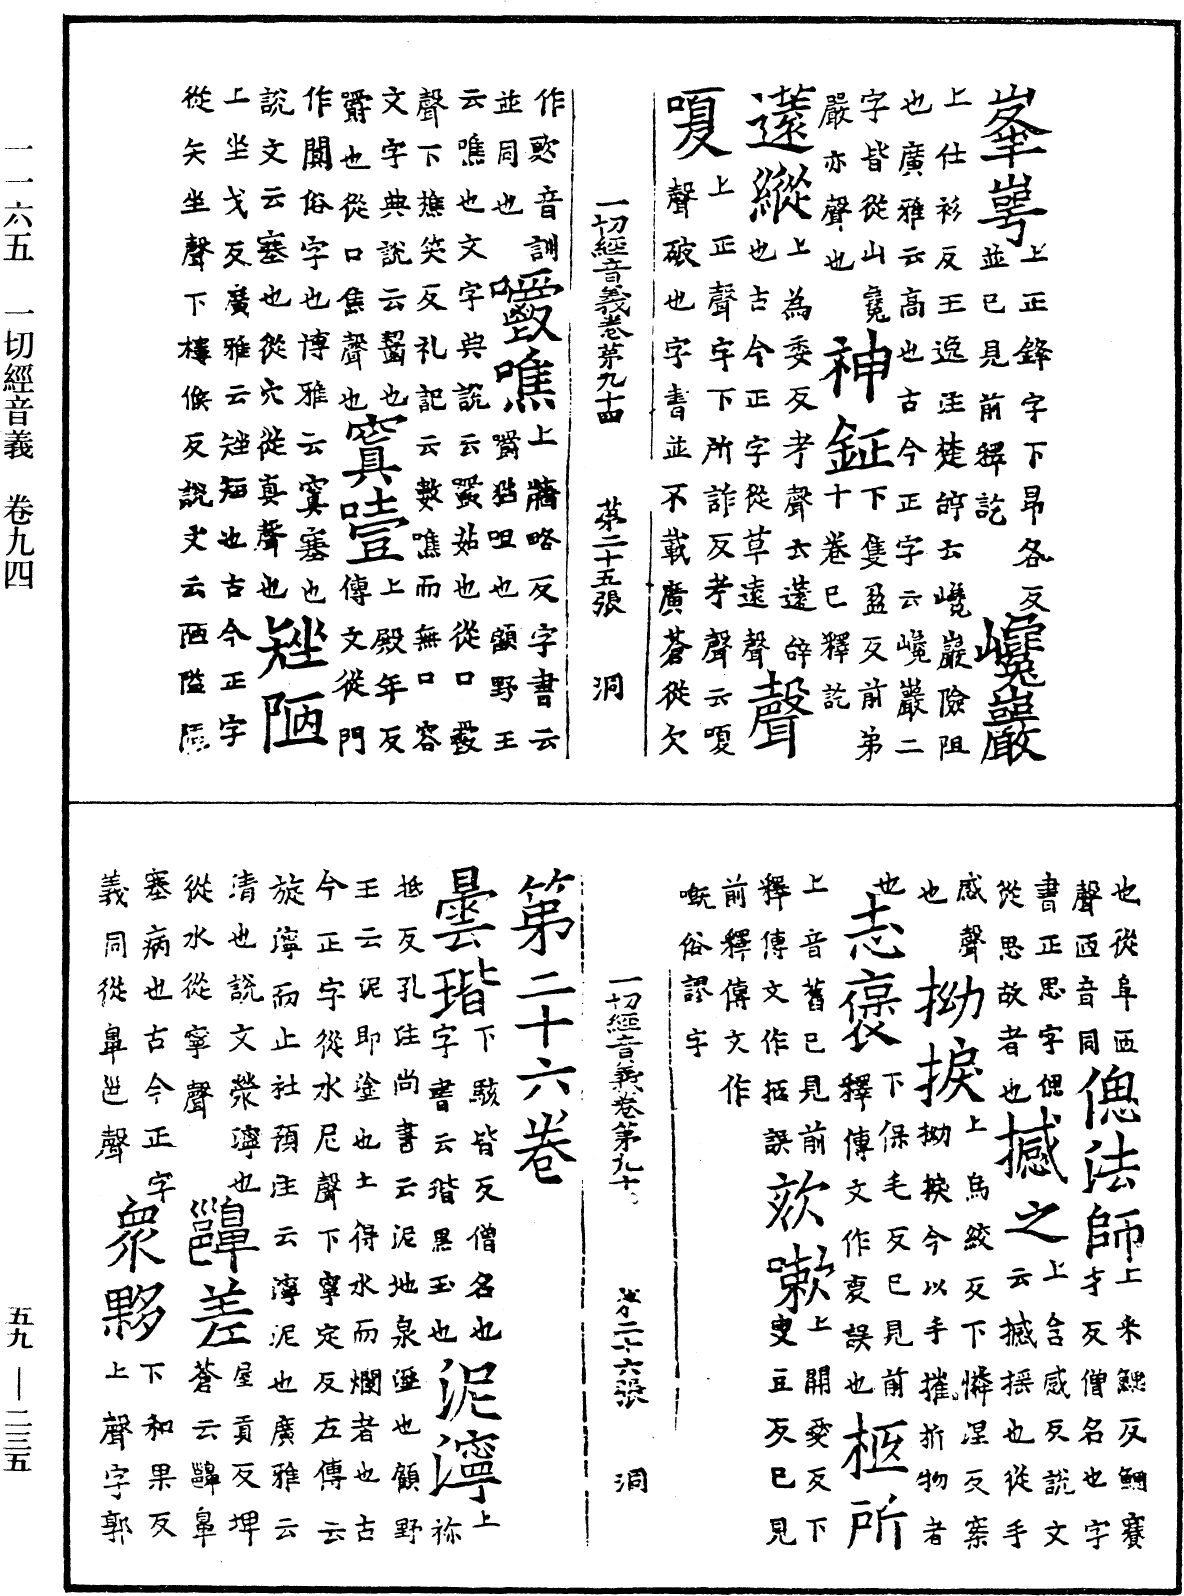 一一六五　一切經音義　卷九四
峯崿上正鋒字下昂各反並已見前釋訖巉巖
上仕衫反王逸注楚辝云巉巖險阻
也廣雅云高也古今正字云巉巖二
字皆從山毚嚴亦聲也神鉦下隻盈反前弟十卷已釋訖
薳縱上為委反考聲云薳辝也古今正字從草遠聲聲
嗄上正聲字下所詐反考聲云嗄聲破也字書並不載廣蒼從欠
一切經音義卷第九十四　第二十五張　洞
作㰺音訓並同也嚼噍上牆略反字書云嚼猶咀也顧野王
云噍也文字典說云嚼茹也從口爵
聲下樵笑反礼記云數噍而無口容
文字典說云齧也從口焦聲也窴噎上殿年反傳文從門
作闐俗字也博雅云窴塞也
說文云塞也從穴從真聲也矬陋
上坐戈反廣雅云矬短也古今正字
從矢坐聲下樓候反說文云陋隘
也從阜㔷聲㔷音同偲法師上采鰓反鰓賽才反僧名也字
書正思字偲從思故者也撼之上含感反說文云撼搖也從手
感聲也拗捩上烏絞反下憐涅反案拗捩今以手摧折物者
也志褒下保毛反已見前釋傳文作裒誤也柩所
上音舊已見前釋傳文作柩誤欬嗽上開愛反下叟豆反已見
前釋傳文作
嘅俗謬字
一切經音義卷第九十　第二十六張　洞
第二十六卷
曇瑎下駭皆反僧名也字書云瑎黑玉也泥濘上祢
抵反孔注尚書云泥地泉溼也顧野
王云泥即塗也土得水而爛者也古
今正字從水尼聲下寧定反左傳云
旋濘而止杜預注云濘泥也廣雅云
清也說文滎濘也從水從寧聲齆差屋貢反埤蒼云齆鼻
塞病也古今正字義同從鼻邕聲眾夥下和果反上聲字郭
五九—二三五